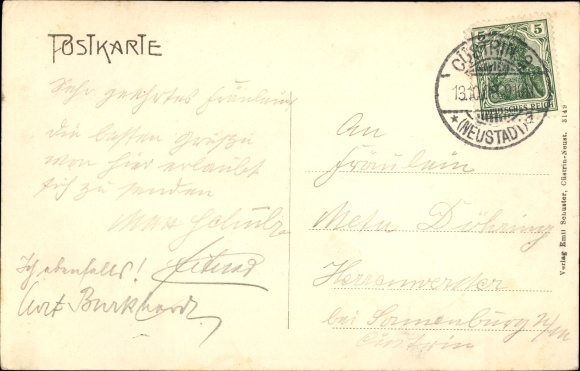 POSTKARTE
Sehr geehrtes Fräulein
die besten Grüße
von hier erlaubt
sich zu senden
Max Schulz
Ich ebenfalls!
Curt Burkhardt.
5
CÜSTRIN 2
13.10
(NEUSTADT)
DEUTSCHES REICH
An
Fräulein
Meta Dühring
Herrenwerder
bei Sonnenburg N/M
Cüstrin
Verlag Emil Schuster, Cüstrin-Neust. 3149